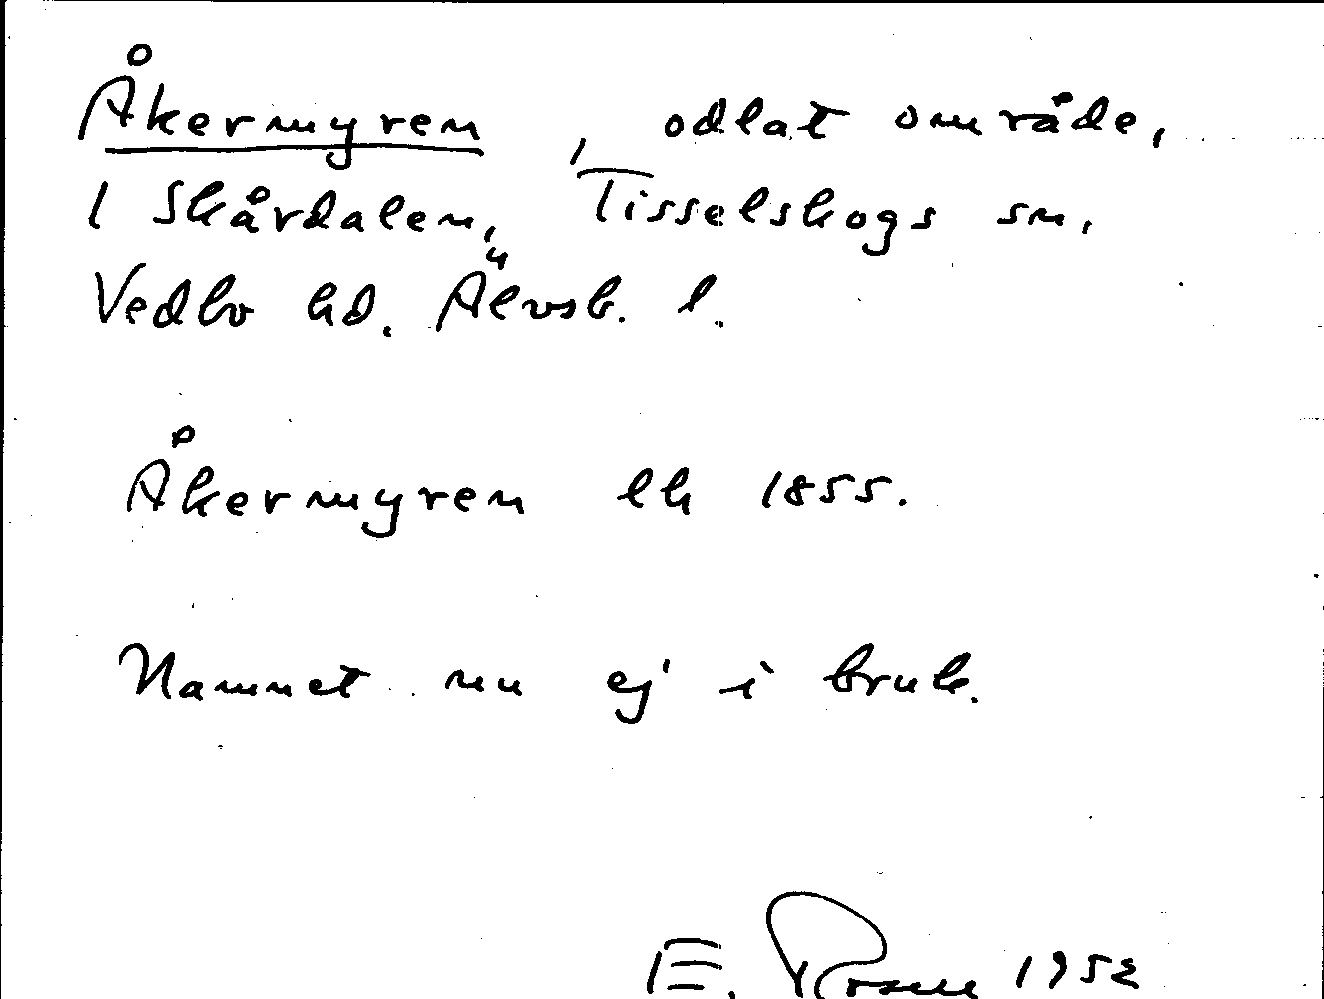 Åkermyren, odlat område,
1 Skårdalen, Tisselskogs sn,
Vedbo hd. Älvsb. l.
Åkermyren lk 1855.
Namnet nu ej i bruk.
E. Rosell 1952